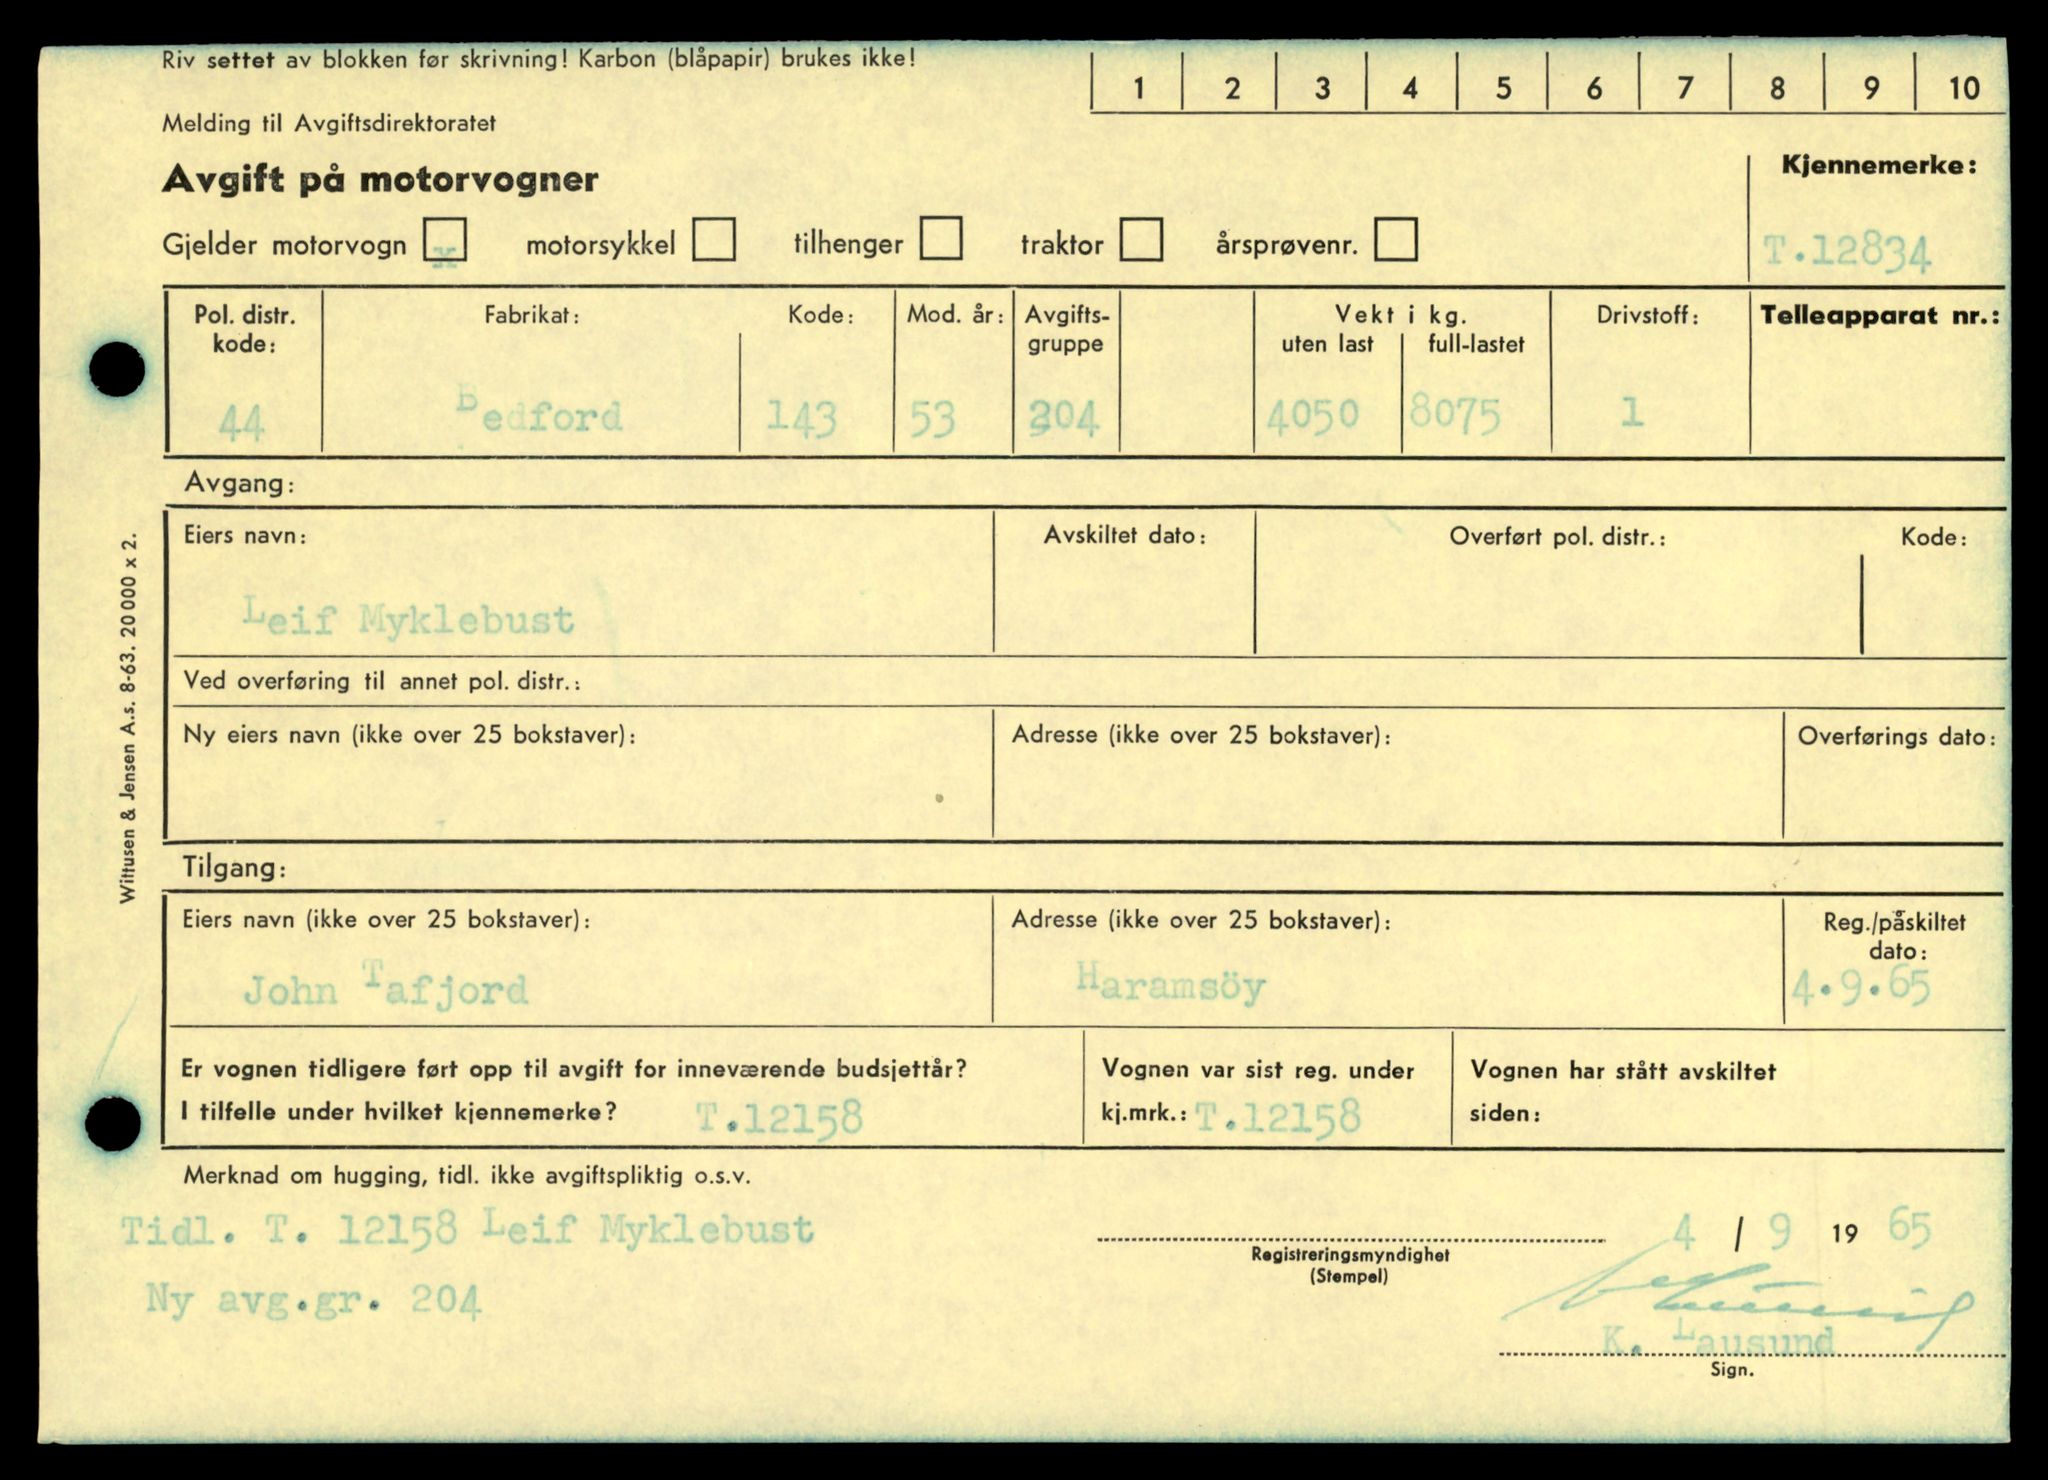 Riv settet av blokken før skrivning! Karbon (blåpapir) brukes ikke!
1 2 3 4 5 6 7 8 9 10
Melding til Avgiftsdirektoratet
Avgift på motorvogner
Kjennemerke:
Gjelder motorvogn x motorsykkel tilhenger traktor årsprøvenr.
T.12834
Pol. distr. kode: Fabrikat: Kode: Mod. år: Avgifts-gruppe Vekt i kg. uten last full-lastet Drivstoff: Telleapparat nr.:
44 Bedford 143 53 204 4050 8075 1
Avgang:
Eiers navn: Avskiltet dato: Overført pol. distr.: Kode:
Leif Myklebust
Ved overføring til annet pol. distr.:
Ny eiers navn (ikke over 25 bokstaver): Adresse (ikke over 25 bokstaver): Overførings dato:
Tilgang:
Eiers navn (ikke over 25 bokstaver): Adresse (ikke over 25 bokstaver): Reg./påskiltet dato:
John Tafjord Haramsöy 4.9.65
Er vognen tidligere ført opp til avgift for inneværende budsjettår? Vognen var sist reg. under Vognen har stått avskiltet
I tilfelle under hvilket kjennemerke? T.12158 kj.mrk.: T.12158 siden:
Merknad om hugging, tidl. ikke avgiftspliktig o.s.v.
Tidl. T. 12158 Leif Myklebust
4 / 9 19 65
Registreringsmyndighet
(Stempel)
Ny avg.gr. 204
K. Lausund
Sign.
Wittusen & Jensen A.s. 8-63. 20 000 x 2.